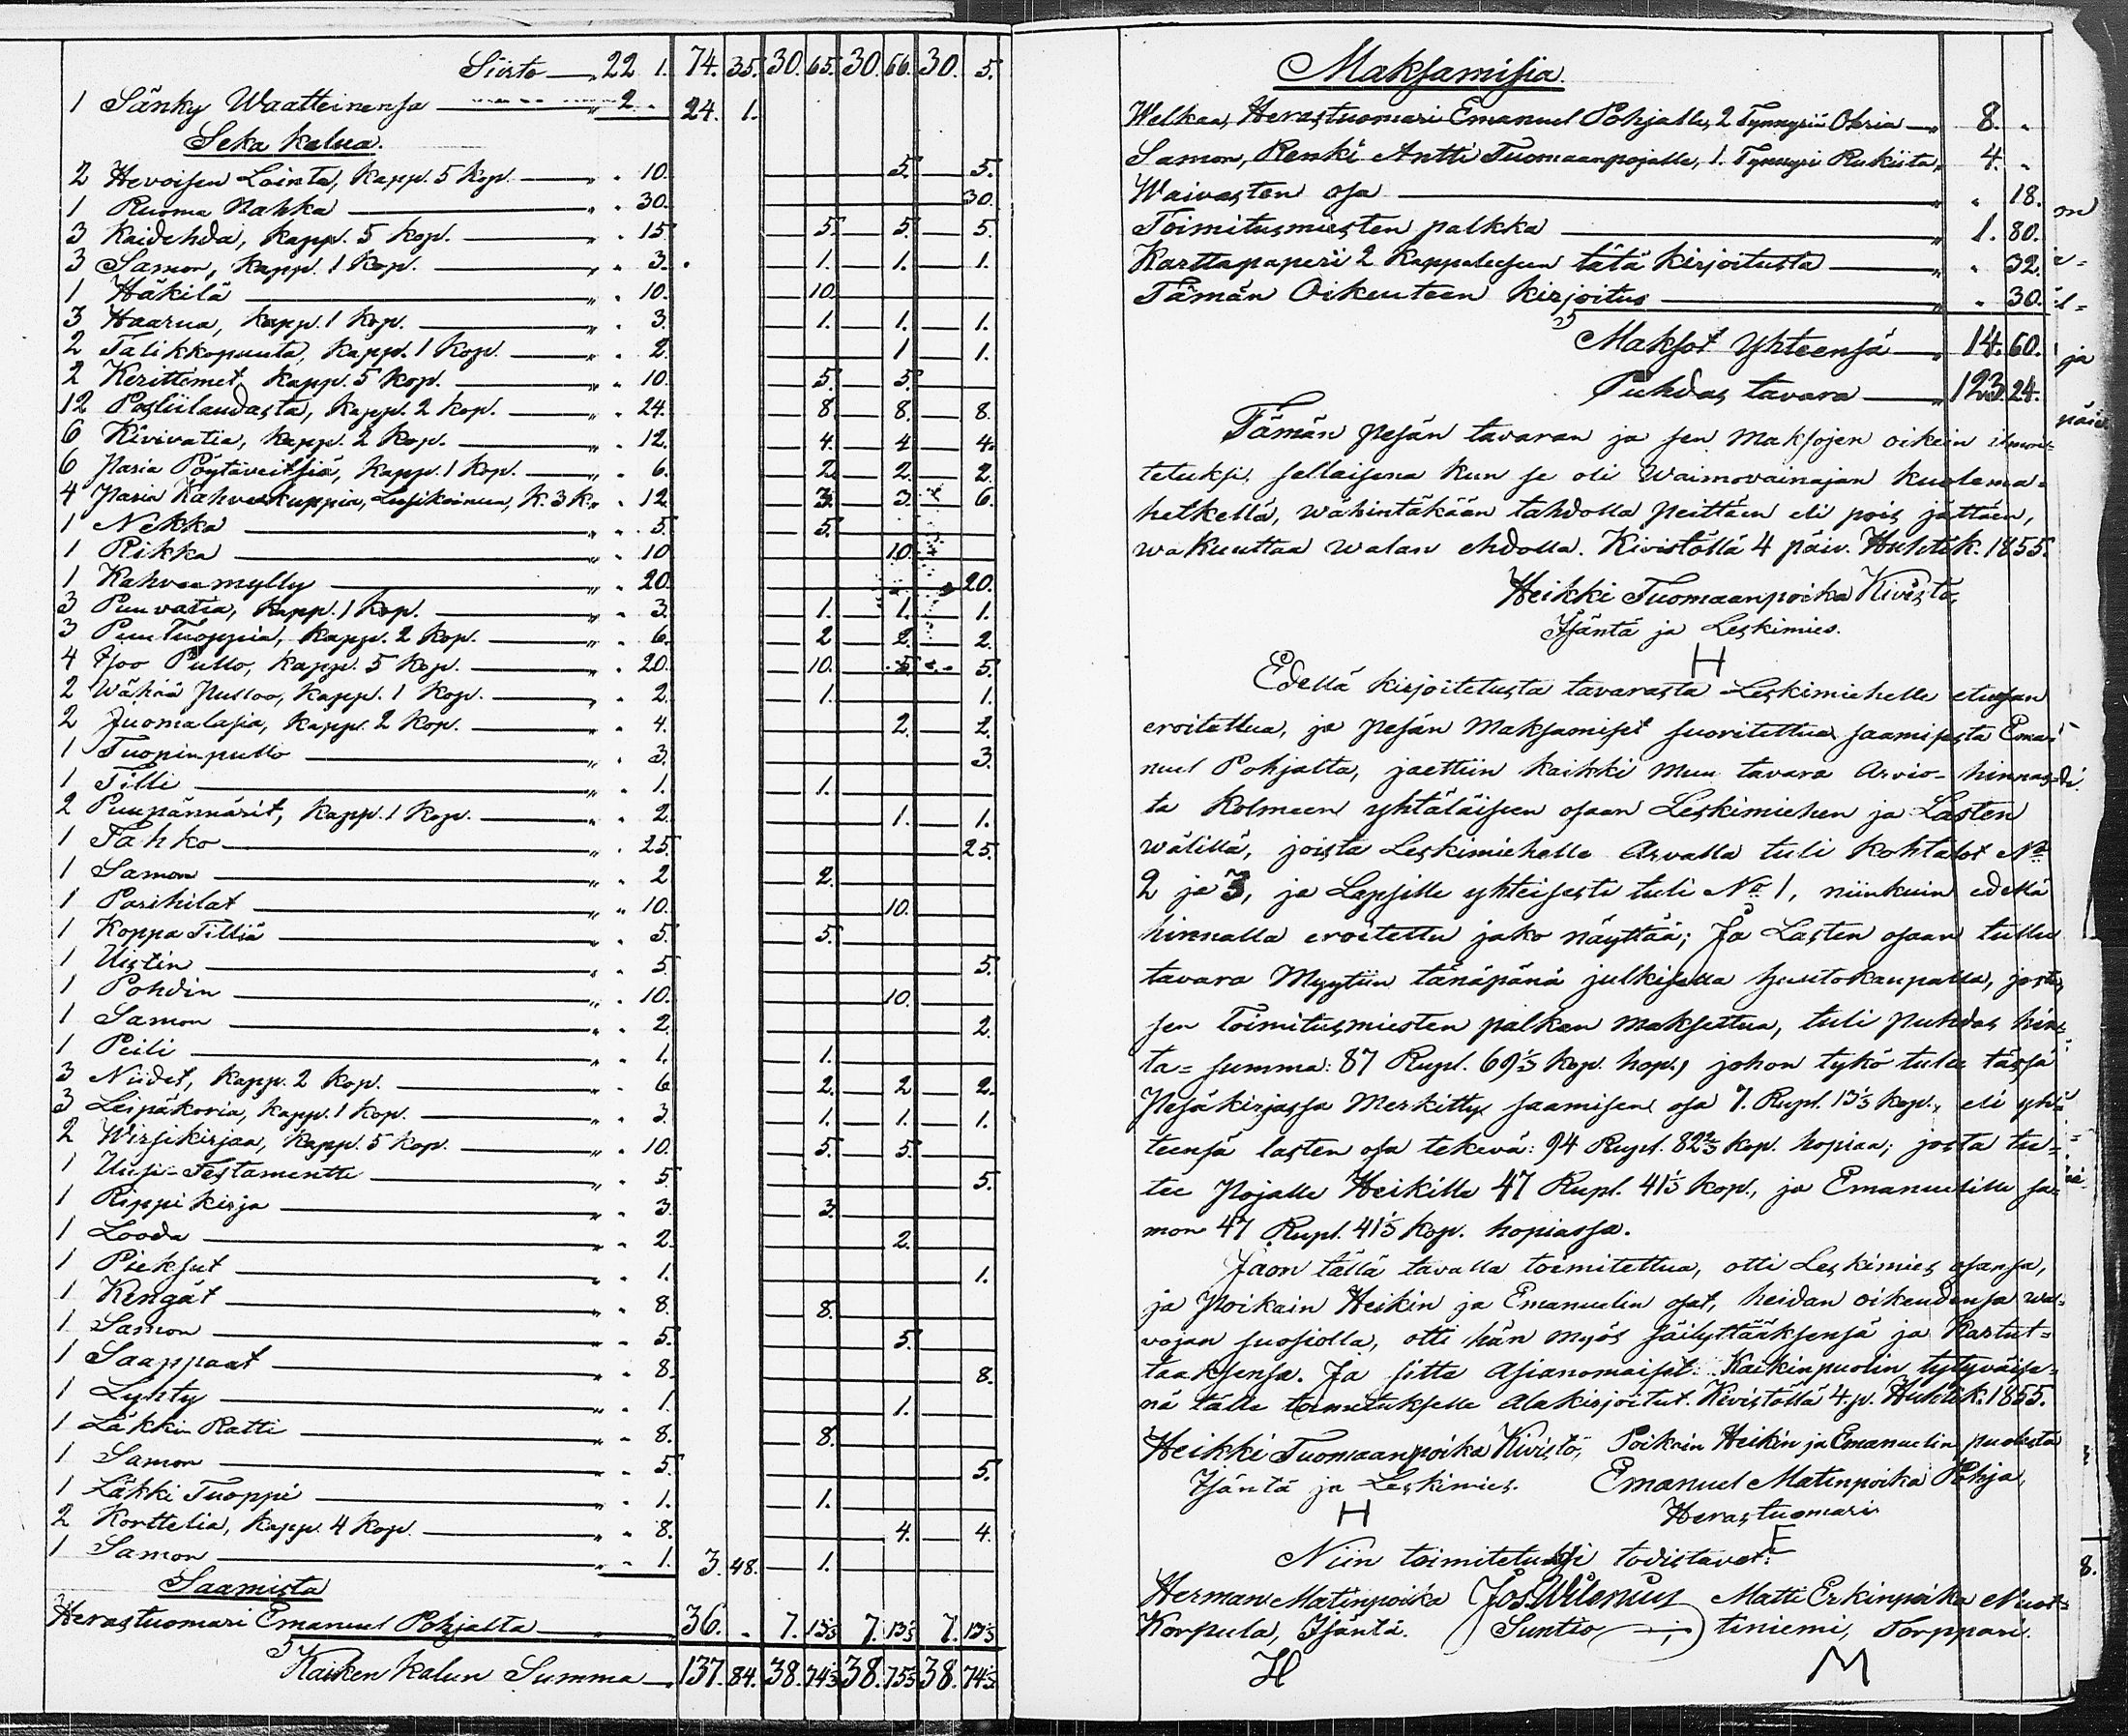 Siirto — 22 1. 74. 35. 30. 65. 30. 66. 30. 5.
1 Sänky Waatteinensa — " 2. " 24. 1.
Seka kalua.
2 Hevoisen Lointa, kapp. 5 kop. — " " 10. 5. 5.
1 Ruoma Nahka — " " 30. 30.
3 Kaidehda, kapp. 5 kop. — " " 15. 5. 5. 5.
3 Samon, kapp. 1 kop. — " " 3. 1. 1. 1.
1 Häkilä — " " 10. 10.
3 Haarua, kapp. 1 kop. — " " 3. 1. 1. 1.
2 Talikkopuuta, kapp. 1 kop. — " " 2. 1 1.
2 Kerittimet, kapp. 5 kop. — " " 10. 5. 5.
12 Posliilaudasta, kapp. 2 kop. — " " 24. 8. 8. 8.
6 Kivivatia, kapp. 2 kop. — " " 12. 4. 4 4.
6 Paria Pöytäveitsiä, kapp. 1 kop. — " " 6. 2. 2. 2.
4 Paria Kahveekuppia, Lusikoineen, k. 3 k. " " 12. 3. 3. 6.
1 Nekka — " " 5. 5.
1 Rikka — " " 10 10.
1 Kahveemylly — " " 20. 20.
3 Puuvatia, kapp. 1 kop. — " " 3. 1. 1. 1.
3 PuuTuoppia, kapp. 2 kop. — " " 6. 2 2. 2.
4 Isoo Pullo, kapp. 5 kop. — " " 20. 10. 5 5.
2 Wähää pulloo, kapp. 1 kop. — " " 2. 1. 1.
2 Juomalasia, kapp. 2 kop. — " " 4. 2. 2.
1 Tuopinpullo — " " 3. 3.
1 Tilli — " " 1. 1.
2 Puupännärit, kapp. 1 kop. — " " 2. 1. 1.
1 Tahko — " " 25. 25.
1 Samon — " " 2 2.
1 Parihilat — " " 10. 10.
1 Koppa Tilliä — " " 5. 5.
1 Uistin — " " 5. 5.
1 Pohdin — " " 10. 10.
1 Samon — " " 2. 2.
1 Peili — " " 1. 1.
3 Niidet, kapp. 2 kop. — " " 6. 2. 2 2.
3 Leipäkoria, kapp. 1 kop. — " " 3. 1. 1. 1.
2 Wirsikirjaa, kapp. 5 kop. — " " 10. 5. 5.
1 Uusi-Testamentti — " " 5. 5.
1 Rippikirja — " " 3. 3.
1 Looda — " " 2. 2.
1 Pieksut — " " 1. 1.
1 Kengät — " " 8. 8.
1 Samon — " " 5. 5.
1 Saappaat — " " 8. 8.
1 Lyhty — " " 1. 1.
1 Läkki Ratti — " " 8. 8.
1 Samon — " " 5. 5.
1 Läkki Tuoppi — " " 1. 1.
2 Korttelia, kapp. 4 kop. — " " 8. 4. 4.
1 Samon — " " 1. 3. 48. 1.
Saamista
Herastuomari Emanuel Pohjalta — 36. " 7. 13⅓ 7. 13⅓ 7. 13⅓
Kaiken kalun Summa — 137. 84. 38. 74⅓ 38. 75⅓ 38. 74⅓
Maksamisia.
Welkaa, Herastuomari Emanuel Pohjalle, 2 Tynnyriä Ohria — " 8. "
Samon, Renki Antti Tuomaanpojalle, 1. Tynnyri Rukiita, " 4. "
Waivasten osa — " " 18.
Toimitusmiesten palkka — " 1. 80.
Karttapaperi 2 Kappaleesen tätä kirjoitusta — " " 32.
Tämän Oikeuteen kirjoitus — " " 30.
Maksot Yhteensä — " 14. 60.
Puhdas tavara — " 123. 24.
Tämän pesän tavaran ja sen maksojen oikein ilmoi-
tetuksi, sellaisena kun se oli Waimovainajan kuolema-
hetkellä, wähintäkään tahdolla peittäen eli pois jättäen,
wakuuttaa walan ehdolla. Kivistöllä 4 päiv. Huhtik. 1855.
Heikki Tuomaanpoika Kivistö,
Isäntä ja Leskimies.
H
Edellä kirjoitetusta tavarasta Leskimiehelle etuosan
eroitettua, ja pesän Maksamiset suoritettua saamisesta Ema-
nuel Pohjalta, jaettiin kaikki muu tavara Arvio-hinnas-
ta Kolmeen yhtäläiseen osaan Leskimiehen ja Lasten
wälillä, joista Leskimiehelle Arvalla tuli kohtalot No
2 ja 3, ja Lapsille yhteisesti tuli No 1, niinkuin edellä
hinnalla eroitettu jako näyttää; Ja Lasten osaan tullu
tavara Myytiin tänäpänä julkisella huutokaupalla, josta,
sen Toimitusmiesten palkan maksettua, tuli puhdas hin-
ta=summa: 87 Rupl. 69⅓ kop. hop., johon tykö tulee tässä
Pesäkirjassa Merkitty saamisen osa 7. Rupl. 13⅓ kop., eli yh-
teensä lasten osa tekevä: 94 Rupl. 82⅔ kop. hopiaa; josta tu-
lee Pojalle Heikille 47 Rupl. 41⅓ kop., ja Emanuelille sa-
mon 47 Rupl. 41⅓ kop. hopiassa.
Jaon tällä tavalla toimitettua, otti Leskimies osansa,
ja Poikain Heikin ja Emanuelin osat, heidan oikeudensa wal-
vojan suosiolla, otti hän myös säilyttääksensä ja kartut-
taaksensa. Ja sitte Asianomaiset Kaikinpuolin tytyväise-
nä tälle toimitukselle Alakirjoitut. Kivistöllä 4. p. Huhtik. 1855.
Heikki Tuomaanpoika Kivistö, Poikain Heikin ja Emanuelin puolesta
Isäntä ja Leskimies. Emanuel Matinpoika Pohja,
H Herastuomari
E
Niin toimitetuksi todistavat:
Herman Matinpoika Jos. Wilenius Matti Erkinpoika Nuot-
Korpela, Isäntä. Suntio tiniemi, Torppari.
H M